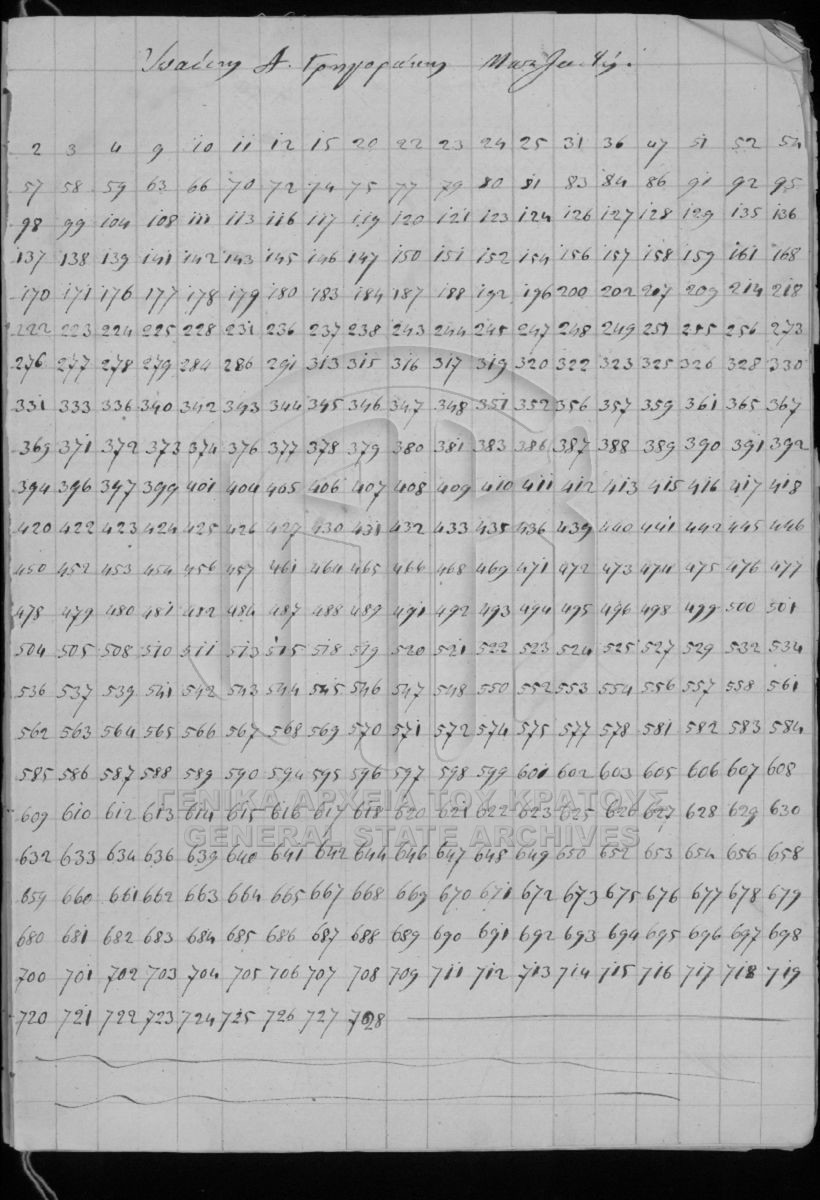 Α. Γρηγοράκης
2 3 4 9 10 11 12 15 20 22 23 24 25 31 36 47 51 52 54
57 58 59 63 66 70 72 74 75 77 79 80 81 83 84 86 91 92 95
98 99 104 108 111 113 116 117 119 120 121 123 124 126 127 128 129 135 136
137 138 139 141 142 143 145 146 147 150 151 152 154 156 157 158 159 161 168
170 171 176 177 178 179 180 183 184 187 188 192 196 200 202 207 209 214 218
222 223 224 225 228 231 236 237 238 243 244 245 247 248 249 251 255 256 273
276 277 278 279 284 286 291 313 315 316 317 319 320 322 323 325 326 328 330
331 333 336 340 342 343 344 345 346 347 348 351 352 356 357 359 361 365 367
369 371 372 373 374 376 377 378 379 380 381 383 386 387 388 389 390 391 392
394 396 397 399 401 404 405 406 407 408 409 410 411 412 413 415 416 417 418
420 422 423 424 425 426 427 430 431 432 433 435 436 439 440 441 442 445 446
450 452 453 454 456 457 461 464 465 466 468 469 471 472 473 474 475 476 477
478 479 480 481 482 484 487 488 489 491 492 493 494 495 496 498 499 500 501
504 505 508 510 511 513 515 518 519 520 521 522 523 524 525 527 529 532 534
536 537 539 541 542 543 544 545 546 547 548 550 552 553 554 556 557 558 561
562 563 564 565 566 567 568 569 570 571 572 574 575 577 578 581 582 583 584
585 586 587 588 589 590 594 595 596 597 598 599 601 602 603 605 606 607 608
ΓΕΝΙΚΑ ΑΡΧΕΙΑ ΤΟΥ ΚΡΑΤΟΥΣ
609 610 612 613 614 615 616 617 618 620 621 622 623 625 626 627 628 629 630
GENERAL STATE ARCHIVES
632 633 634 636 639 640 641 642 644 646 647 648 649 650 652 653 654 656 658
659 660 661 662 663 664 665 667 668 669 670 671 672 673 675 676 677 678 679
680 681 682 683 684 685 686 687 688 689 690 691 692 693 694 695 696 697 698
700 701 702 703 704 705 706 707 708 709 711 712 713 714 715 716 717 718 719
720 721 722 723 724 725 726 727 728